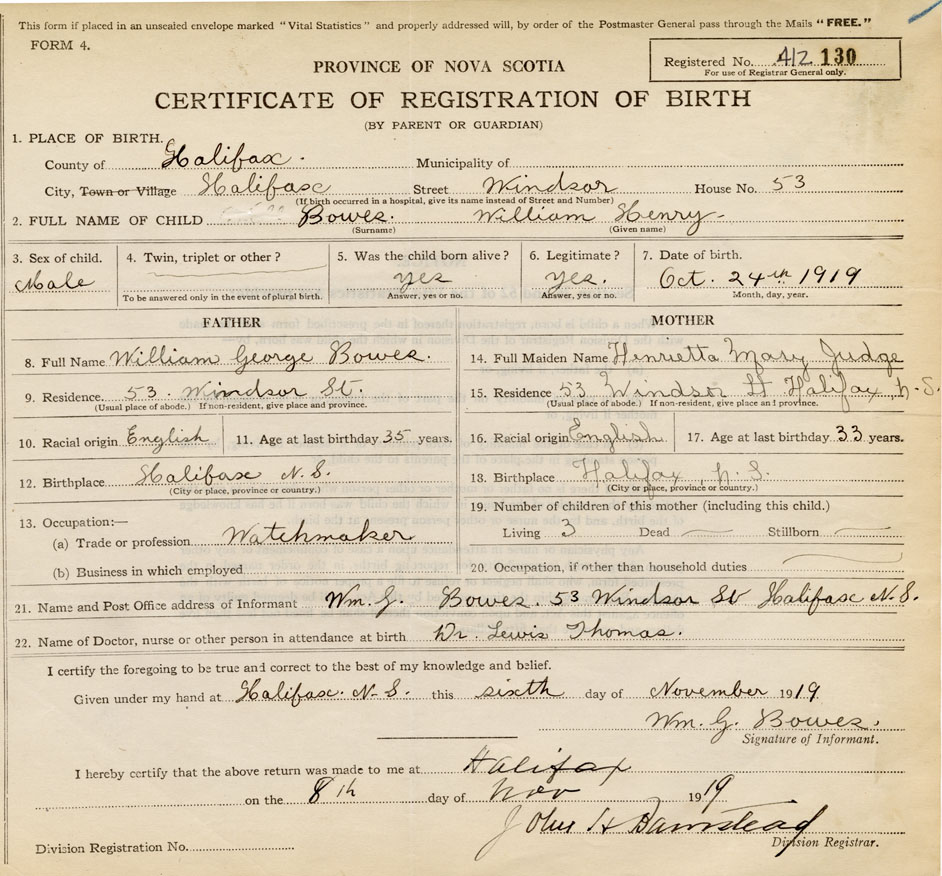 This form if placed in an unsealed envelope marked "Vital Statistics" and properly addressed will, by order of the Postmaster General pass through the Mails "FREE."
FORM 4.
Registered No. 412 130
For use of Registrar General only.
PROVINCE OF NOVA SCOTIA
CERTIFICATE OF REGISTRATION OF BIRTH
(BY PARENT OR GUARDIAN)
1. PLACE OF BIRTH.
County of Halifax. Municipality of
City, Town or Village Halifax Street Windsor House No. 53
(If birth occurred in a hospital, give its name instead of Street and Number)
2. FULL NAME OF CHILD Bowes. William Henry
(Surname) (Given name)
3. Sex of child. 4. Twin, triplet or other? 5. Was the child born alive? 6. Legitimate? 7. Date of birth.
Male yes yes. Oct. 24th 1919
To be answered only in the event of plural birth. Answer, yes or no. Answer, yes or no. Month, day, year.
FATHER
8. Full Name William George Bowes.
9. Residence. 53 Windsor St.
(Usual place of abode.) If non-resident, give place and province.
10. Racial origin English 11. Age at last birthday 35 years.
12. Birthplace Halifax N.S.
(City or place, province or country.)
13. Occupation:—
(a) Trade or profession Watchmaker
(b) Business in which employed
MOTHER
14. Full Maiden Name Henrietta Mary Judge
15. Residence 53 Windsor St Halifax, N.S.
(Usual place of abode.) If non-resident, give place and province.
16. Racial origin English 17. Age at last birthday 33 years.
18. Birthplace Halifax, N.S.
(City or place, province or country.)
19. Number of children of this mother (including this child.)
Living 3 Dead Stillborn
20. Occupation, if other than household duties
21. Name and Post Office address of Informant Wm. G. Bowes. 53 Windsor St Halifax N.S.
22. Name of Doctor, nurse or other person in attendance at birth Dr. Lewis Thomas.
I certify the foregoing to be true and correct to the best of my knowledge and belief.
Given under my hand at Halifax. N.S. this sixth day of November 1919
Wm. G. Bowes.
Signature of Informant.
I hereby certify that the above return was made to me at Halifax
on the 8th day of Nov 1919
John H Barnstead
Division Registrar.
Division Registration No.